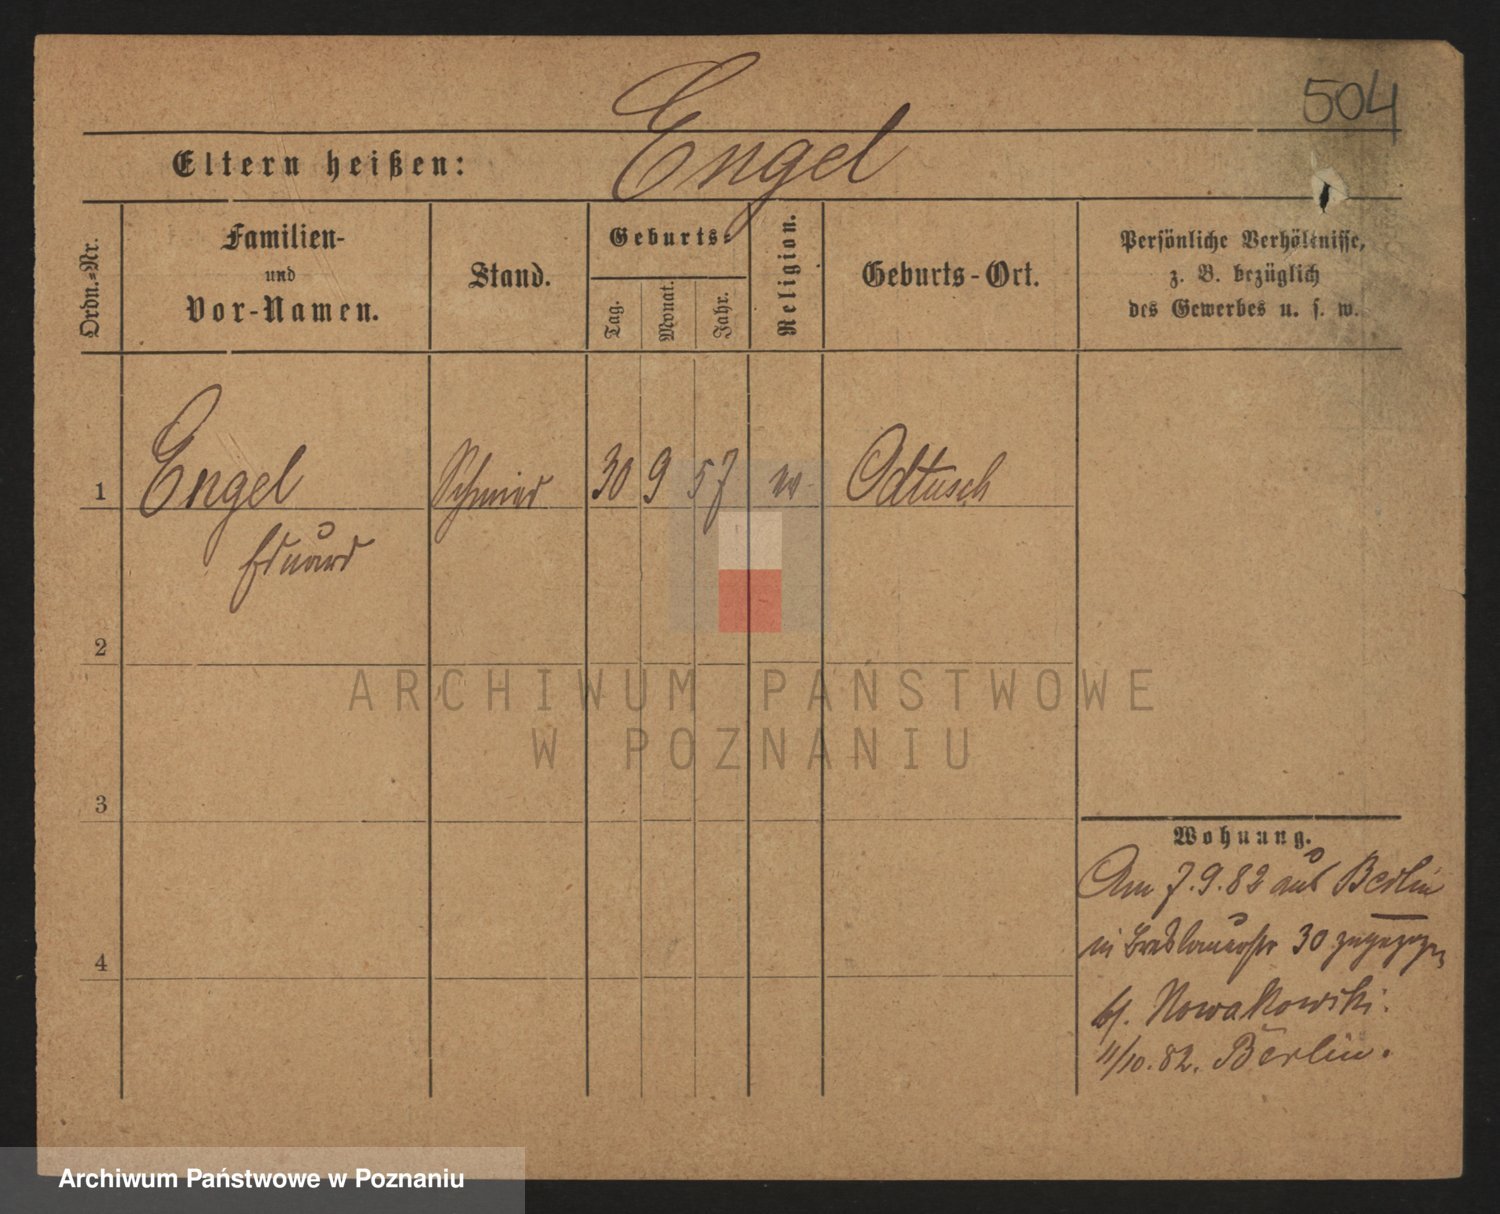 504
Engel
Eltern heißen:
Ordn.-Nr.
Familien-
und
Vor-Namen.
Stand.
Geburts-
Tag.
Monat.
Jahr.
Religion.
Geburts-Ort.
Persönliche Verhältnisse,
z. B. bezüglich
des Gewerbes u. s. w.
1 Engel 30 9 57 Odtusch
Eduard
2
3
4
ARCHIWUM PAŃSTWOWE
W POZNANIU
Wohnung.
Am 7.9.82 aus Berlin
in Breslauerstr 30 zugezogen
Nowakowski.
11/10.82. Berlin.
Archiwum Państwowe w Poznaniu